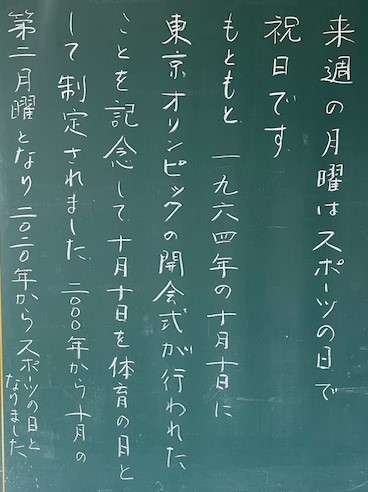 来週の月曜はスポーツの日で
祝日です
もともと 一九六四年の十月十日に
東京オリンピックの開会式が行われた
ことを記念して十月十日を体育の日と
して制定されました 二〇〇〇年から十月の
第二月曜となり 二〇二〇年からスポーツの日と
なりました